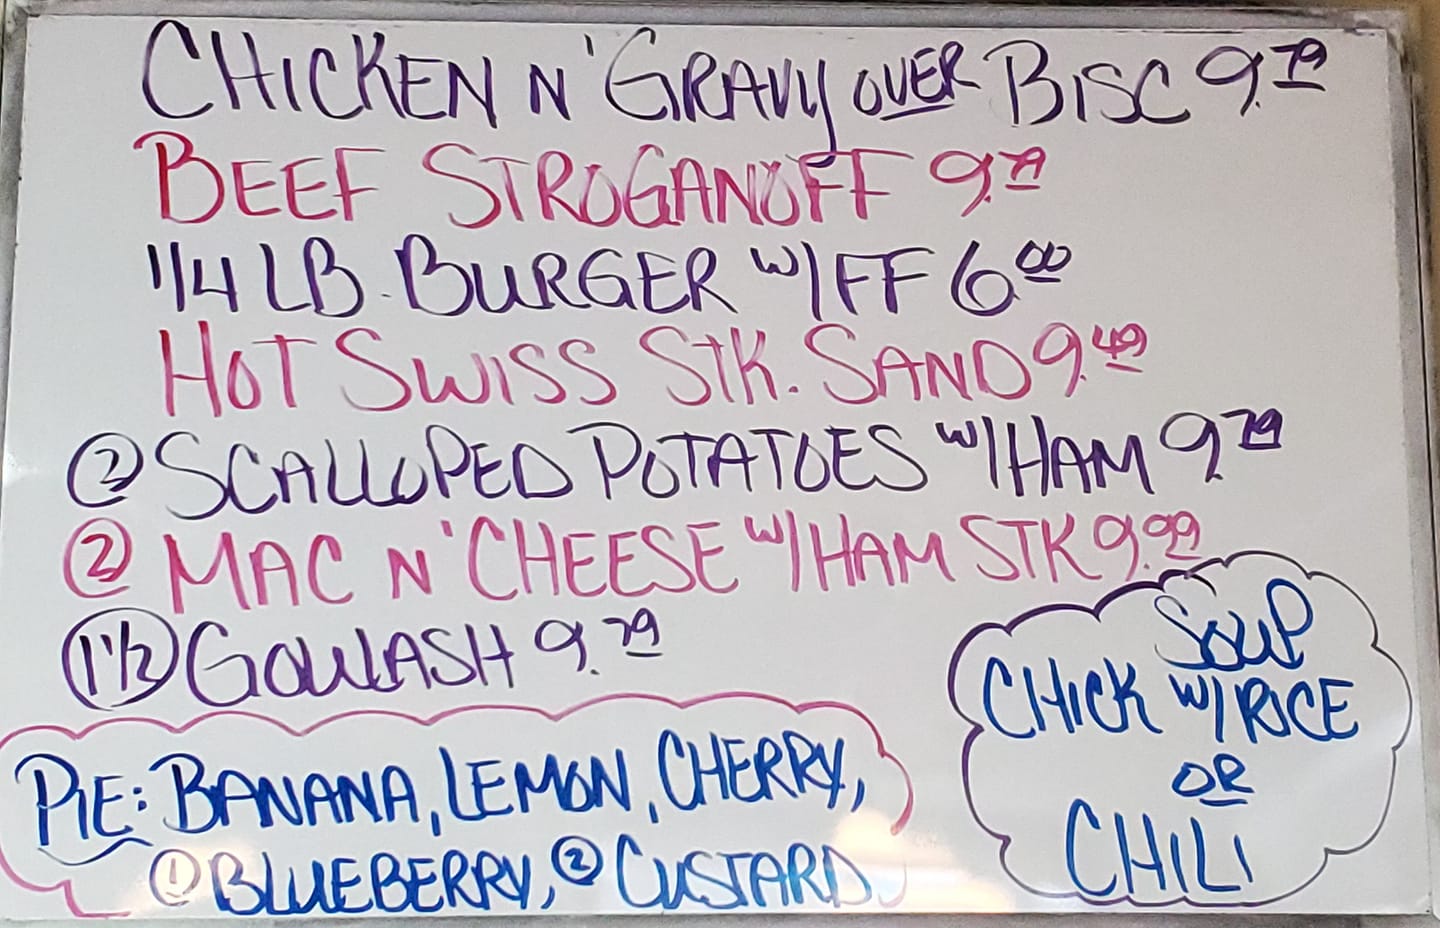 CHICKEN N' GRAVY OVER BISC 9.79
BEEF STROGANOFF 9.79
1/4 LB. BURGER W/FF 6.00
HOT SWISS STK. SAND 9.49
2 SCALLOPED POTATOES W/HAM 9.79
2 MAC N' CHEESE W/HAM STK 9.99
1 1/2 GOULASH 9.79
PIE: BANANA, LEMON, CHERRY,
1 BLUEBERRY, 2 CUSTARD
SOUP
CHICK W/RICE
OR
CHILI